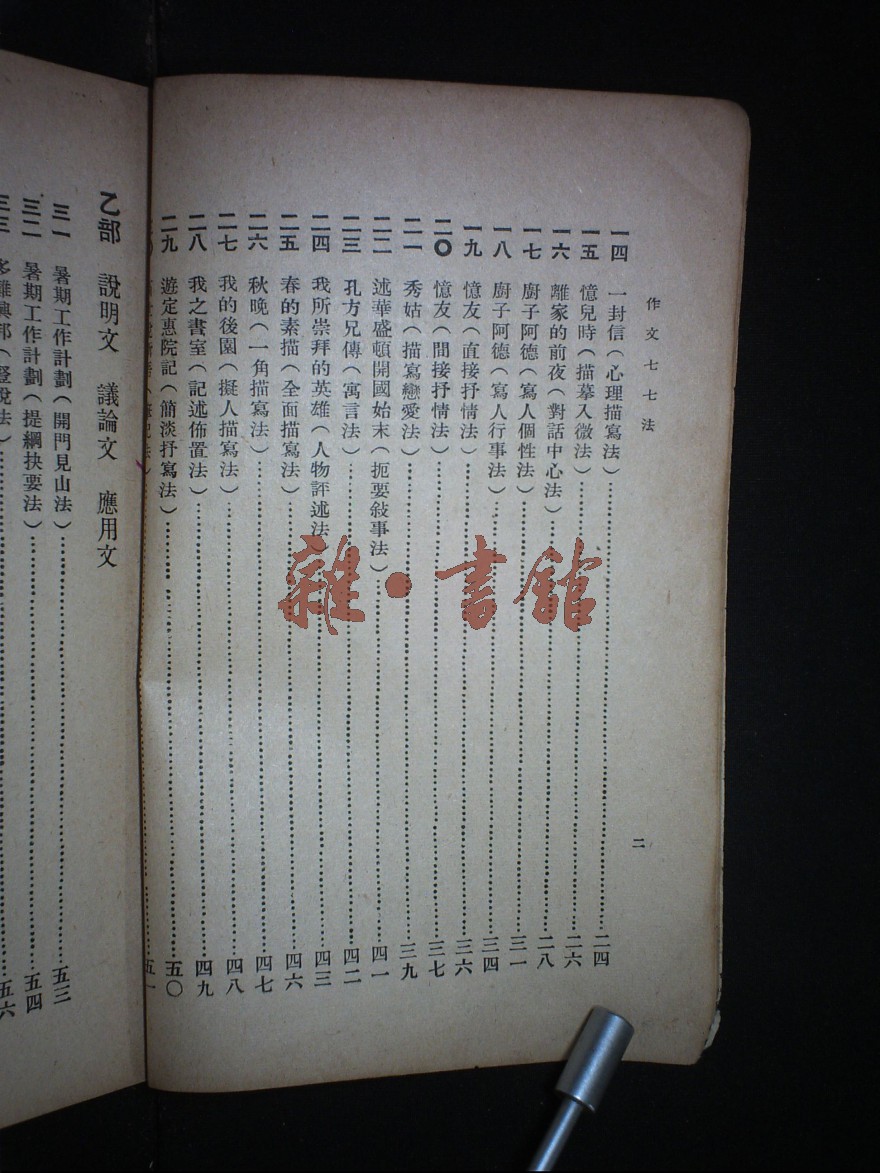 作文七七法
二
一四 一封信(心理描寫法)……二四
一五 憶兒時(描摹入微法)……二六
一六 離家的前夜(對話中心法)……二八
一七 廚子阿德(寫人個性法)……三一
一八 廚子阿德(寫人行事法)……三四
一九 憶友(直接抒情法)……三六
二〇 憶友(間接抒情法)……三七
二一 秀姑(描寫戀愛法)……三九
二二 述華盛頓開國始末(扼要敍事法)……四一
二三 孔方兄傳(寓言法)……四二
二四 我所崇拜的英雄(人物評述法)……四三
二五 春的素描(全面描寫法)……四六
二六 秋晚(一角描寫法)……四七
二七 我的後園(擬人描寫法)……四八
二八 我之書室(記述佈置法)……四九
二九 遊定惠院記(簡淡抒寫法)……五〇
五一
乙部 說明文 議論文 應用文
三一 暑期工作計劃(開門見山法)……五三
三二 暑期工作計劃(提綱抉要法)……五四
三三 多難興邦……五六
雜·書館